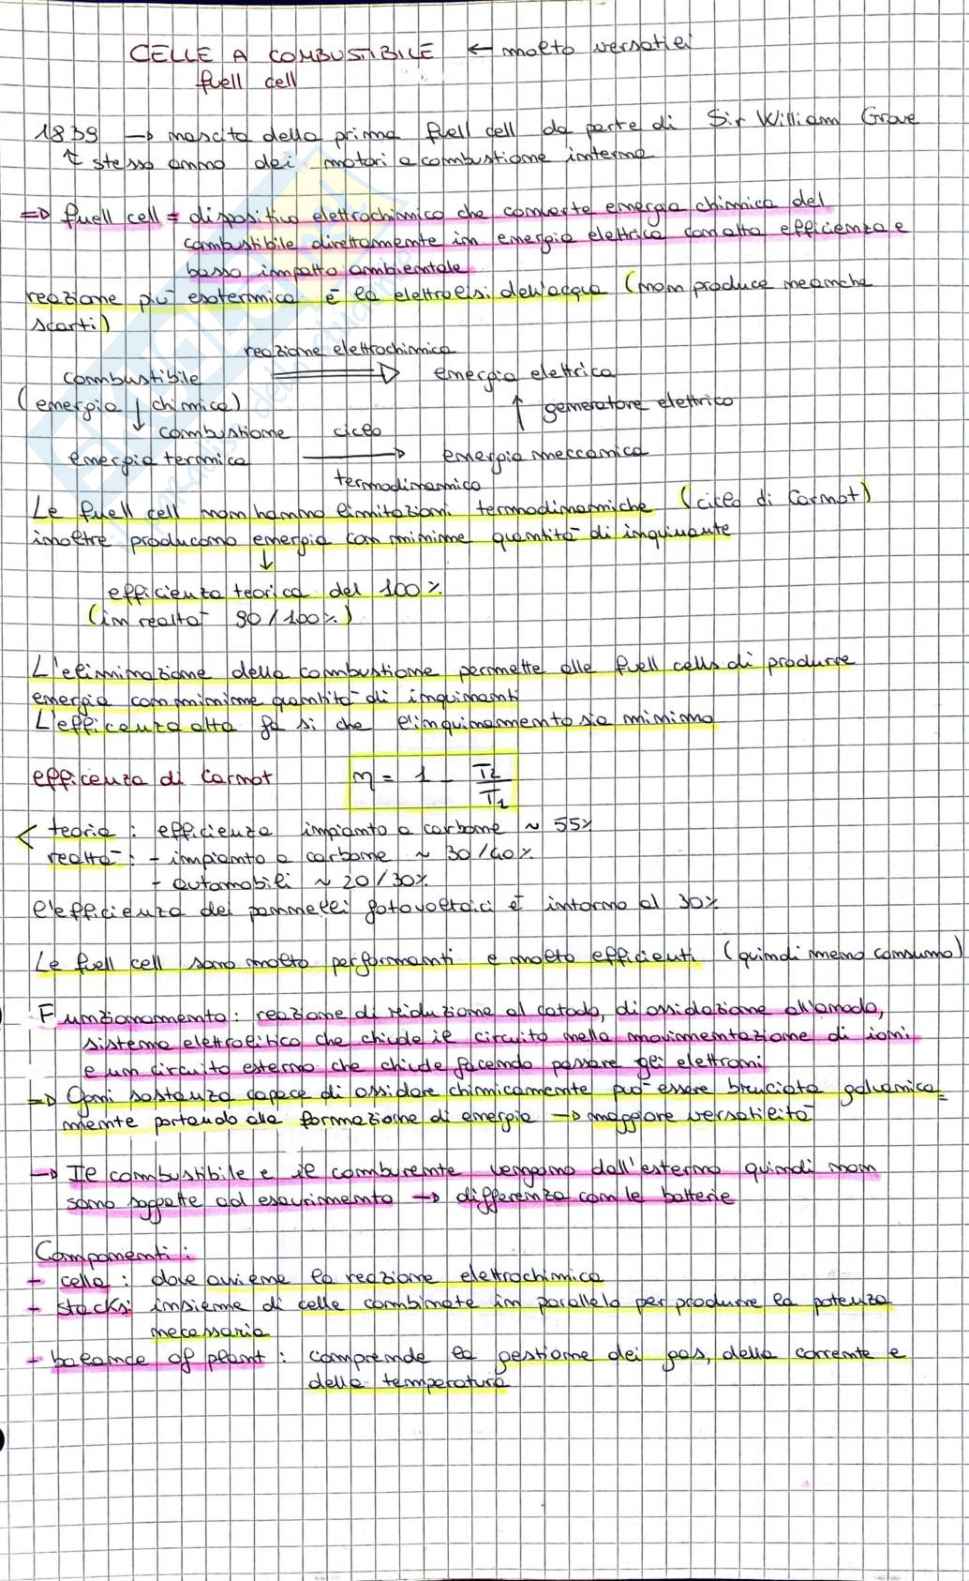 CELLE A COMBUSTIBILE ← molto versatili
fuell cell
1839 → nascita della prima fuell cell da parte di Sir William Grove
↑ stesso anno dei motori a combustione interna
⇒ fuell cell = dispositivo elettrochimico che converte energia chimica del
combustibile direttamente in energia elettrica con alta efficienza e
basso impatto ambientale
reazione più esotermica è la elettrolisi dell'acqua (non produce neanche
scarti)
reazione elettrochimica
combustibile ⇒ energia elettrica
(energia ↓ chimica) ↑ generatore elettrico
combustione ciclo
energia termica → energia meccanica
termodinamico
Le fuell cell non hanno limitazioni termodinamiche (ciclo di Carnot)
inoltre producono energia con minime quantità di inquinante
↓
efficienza teorica del 100%
(in realtà 90/100%)
L'eliminazione della combustione permette alle fuell cells di produrre
energia con minime quantità di inquinanti
L'efficenza alta fa si che l'inquinamento sia minimo
efficenza di Carnot η = 1 - T2/T1
teoria : efficienza impianto a carbone ~ 55%
realtà : - impianto a carbone ~ 30/40%
- automobili ~ 20/30%
l'efficienza dei pannelli fotovoltaici è intorno al 30%
Le fuell cell sono molto performanti e molto efficienti (quindi meno consumo)
Funzionamento: reazione di riduzione al catodo, di ossidazione all'anodo,
sistema elettrolitico che chiude il circuito nella movimentazione di ioni
e un circuito esterno che chiude facendo passare gli elettroni
⇒ Ogni sostanza capace di ossidare chimicamente può essere bruciata galvanica=
mente portando alla formazione di energia → maggiore versatilità
→ Il combustibile e il comburente vengono dall'esterno quindi non
sono soggette ad esaurimento → differenza con le batterie
Componenti :
- cella : dove avviene la reazione elettrochimica
- stacks: insieme di celle combinate in parallelo per produrre la potenza
necessaria
- balance of plant : comprende la gestione dei gas, della corrente e
della temperatura